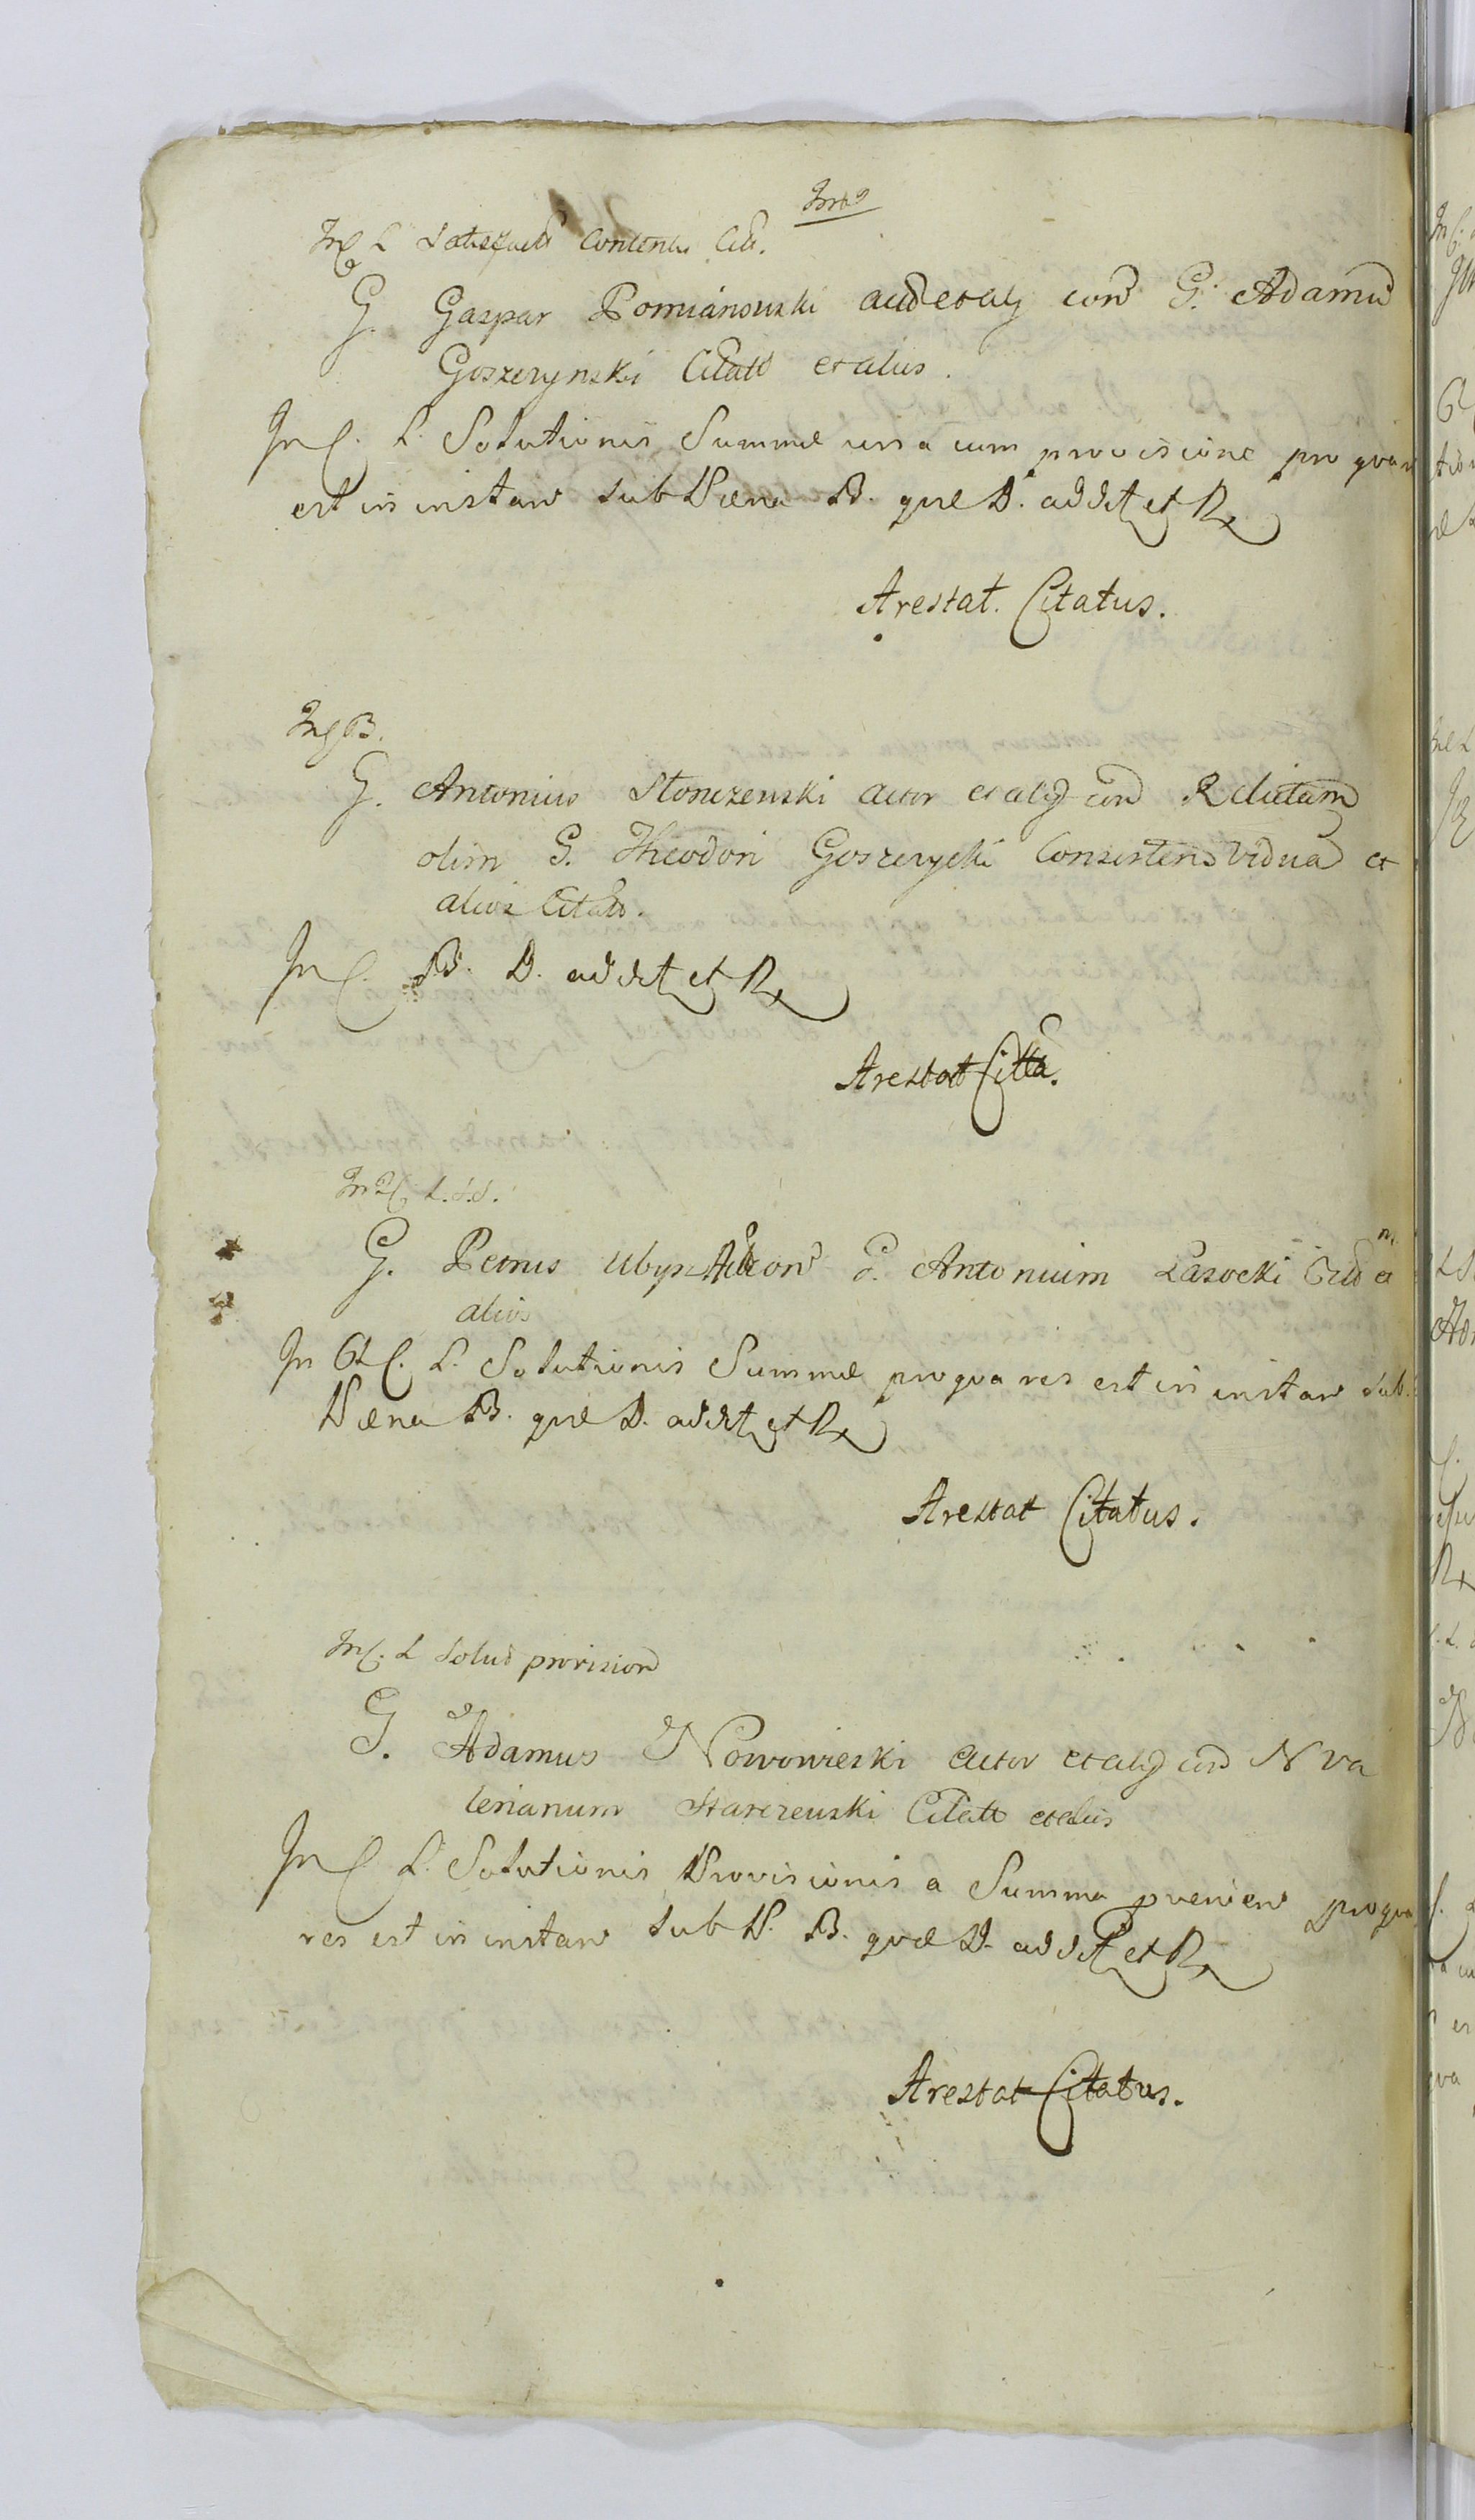 InC L Satisfact Contentis Citt.
G. Gaspar Pomianowski act et alij con G. Adamu
Goszczynski Citatt et alios.
In C. L. Solutionis Summæ una cum provisione pro qua
est in instan sub Pæna B. quæ D. addit et R
Arestat. Citatus.
InC B.
G. Antonius Stonczewski actor et alij con Relictam
olim G. Theodori Goszczycki Consortens Vidua et
alios Citatt.
In C. B. D. addit et R
Arestat Citta.
In C L.S.S.
G. Petrus Ubysz Act con G. Antonium Lasocki Citt et
alios
In C. L. Solutionis Summæ pro qua res est in instan sub
Pæna B. quæ D. addit et R
Arestat Citatus.
InC. L Solut provision
G. Adamus Nowowieski actor et alij con N Va
lerianum Starczewski Citatt et alios
In C L. Solutionis Provisionis a Summa provenien pro qua
res est in instan sub P. B. quæ D. addit et R
Arestat Citatus.